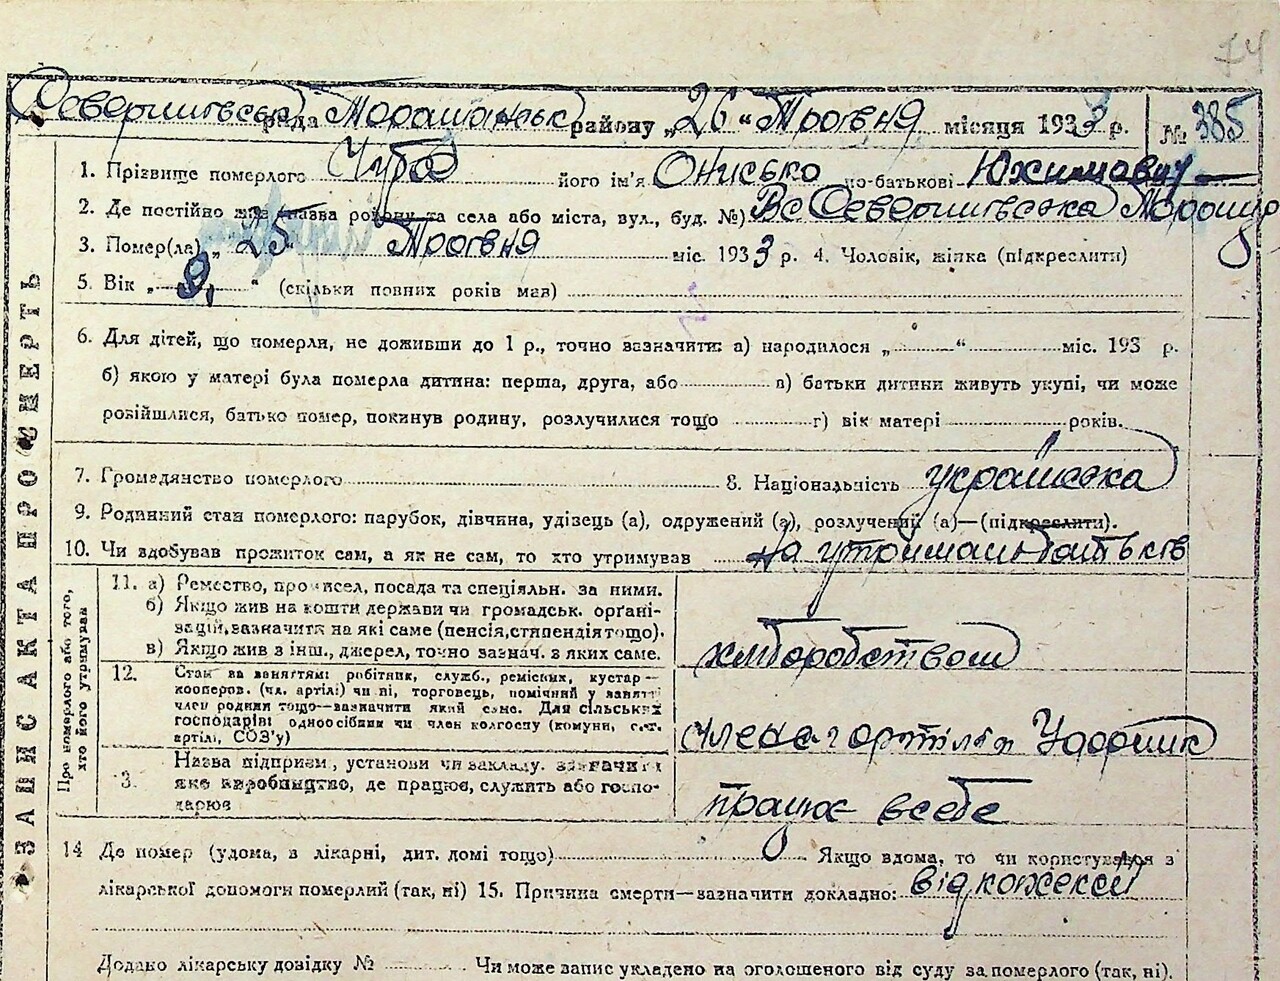 74
Северинівська рада Томашпільськ району „26“ Травня місяця 1933 р. № 385
1. Прізвище померлого Чуба його ім'я Онисько по-батькові Юхимович
2. Де постійно жив (назва району та села або міста, вул., буд. №) Вс
3. Помер(ла) „25“ Травня міс. 1933 р. 4. Чоловік, жінка (підкреслити)
5. Вік „9“ (скільки повних років мав)
6. Для дітей, що померли, не доживши до 1 р., точно зазначити: а) народилося „ “ міс. 193 р.
б) якою у матері була померла дитина: перша, друга, або в) батьки дитини живуть укупі, чи може
розійшлися, батько помер, покинув родину, розлучилися тощо г) вік матері років.
7. Громадянство померлого 8. Національність українка
9. Родинний стан померлого: парубок, дівчина, удівець (а), одружений (а), розлучений (а)—(підкреслити).
10. Чи здобував прожиток сам, а як не сам, то хто утримував на утриман батьків
ЗАПИС АКТА ПРО СМЕРТЬ
Про померлого або того, хто його утримував
11. а) Ремество, промисел, посада та спеціяльн. за ними.
б) Якщо жив на кошти держави чи громадськ. органі-
зацій, зазначити на які саме (пенсія, стипендія тощо).
в) Якщо жив з інш., джерел, точно зазнач. з яких саме.
хліборобством
12. Стан за заняттями: робітник, служб., ремісник, кустар—
кооперов. (чл. артілі) чи ні, торговець, помічний у занятті
член родини тощо—зазначити який саме. Для сільських
господарів: одноосібник чи член колгоспу (комуни, с.-г.
артілі, СОЗ'у)
член артілі Ударник
13. Назва підприєм., установи чи закладу. зазначити
яке виробництво, де працює, служить або госпо-
дарює
працює в себе
14 Де помер (удома, в лікарні, дит. домі тощо) Якщо вдома, то чи користувався з
лікарської допомоги померлий (так, ні) 15. Причина смерти—зазначити докладно: від
Додано лікарську довідку № Чи може запис укладено на оголошеного від суду за померлого (так, ні).